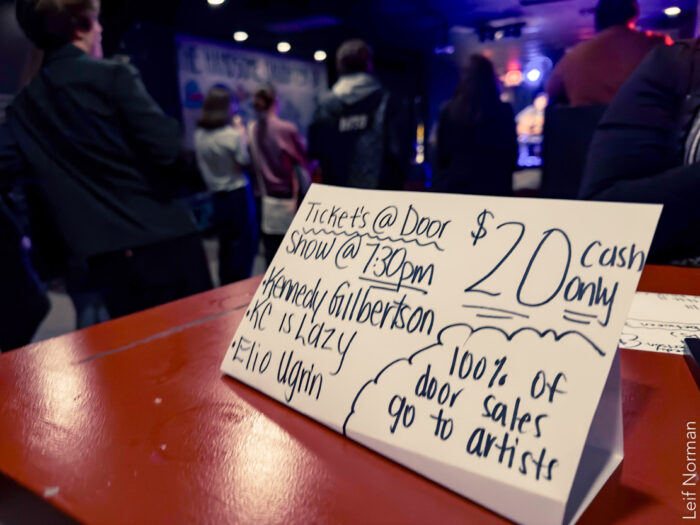 THE HANDSOME DAUGHTER
Ticket's @ Door
Show @ 7:30pm
•Kennedy Gilbertson
•KC is Lazy
•Elio Ugrin
$20 Cash
only
100% of
door sales
go to
artists
Leif Norman